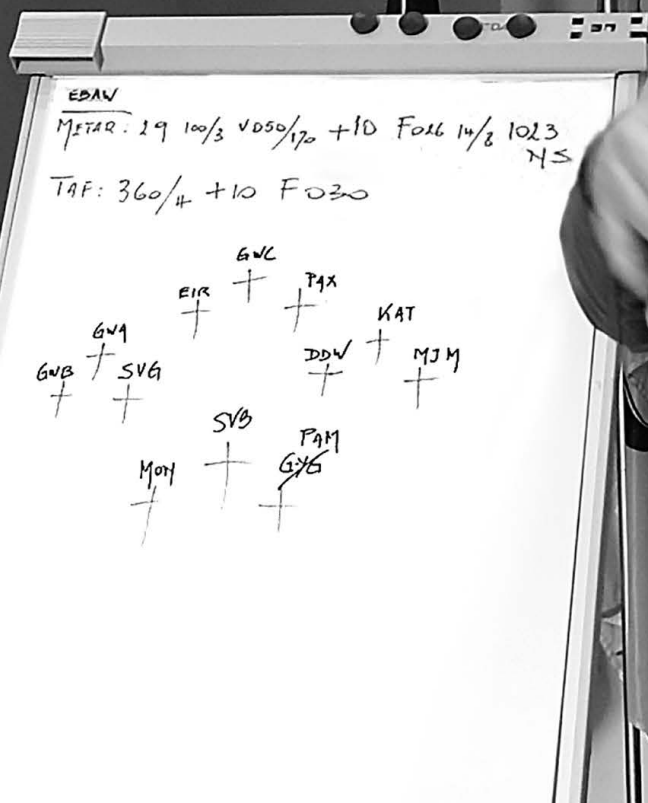 EBAW
METAR: 29 100/3 VD50/170 +10 F026 14/8 1023
NS
TAF: 360/4 +10 F030
GWC
EIR PAX
KAT
GWA
DDW MJM
GWB SVG
SVB
PAM
MON